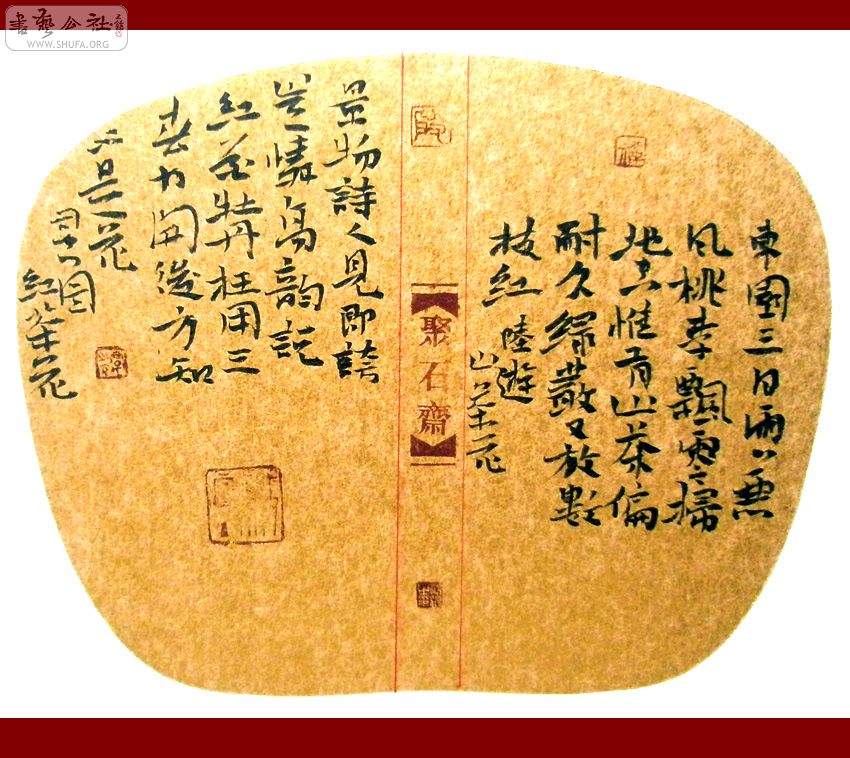 書藝公社
WWW.SHUFA.ORG
東園三日雨兼
風桃李飄零掃
地空惟有山茶偏
耐久綠叢又放數
枝紅 陸遊
山茶花
聚石齋
景物詩人見即誇
豈憐高韻說
紅茶牡丹枉用三
春力開後方知
不是花
司空图
紅茶花